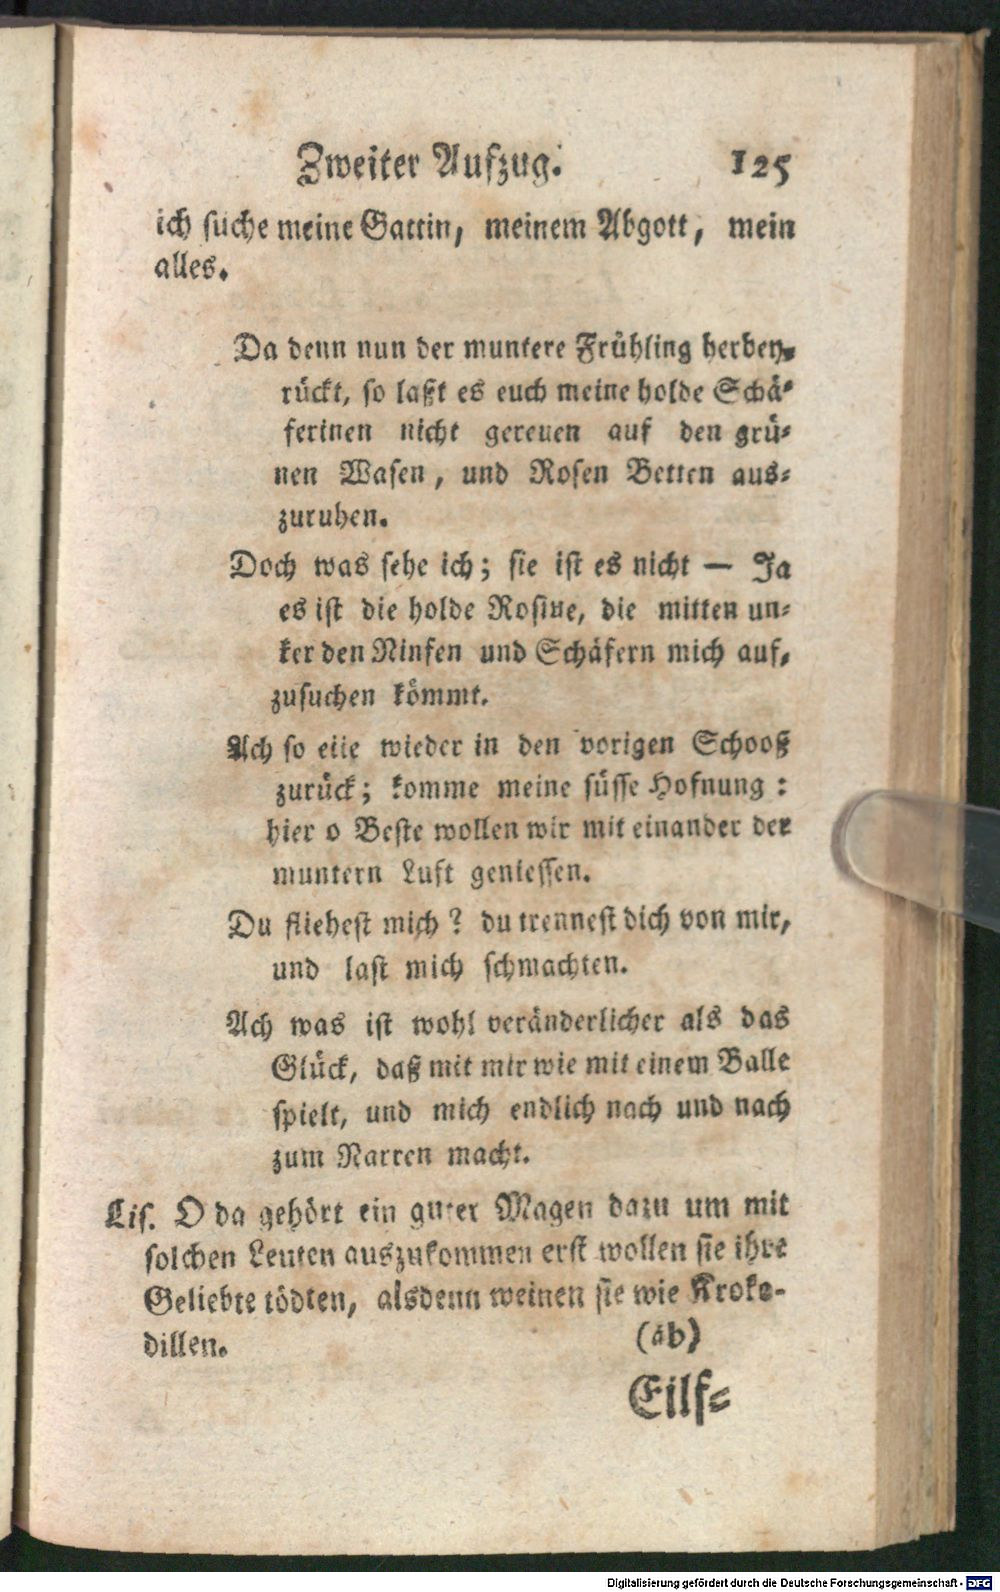 Zweiter Aufzug. 125
ich suche meine Gattin, meinem Abgott, mein
alles.
Da denn nun der muntere Frühling herbey-
rückt, so laßt es euch meine holde Schä-
ferinen nicht gereuen auf den grü-
nen Wasen, und Rosen Betten aus-
zuruhen.
Doch was sehe ich; sie ist es nicht — Ja
es ist die holde Rosine, die mitten un-
ker den Ninfen und Schäfern mich auf-
zusuchen kömmt.
Ach so eile wieder in den vorigen Schooß
zurück; komme meine süsse Hofnung:
hier o Beste wollen wir mit einander der
muntern Luft geniessen.
Du fliehest mich? du trennest dich von mir,
und last mich schmachten.
Ach was ist wohl veränderlicher als das
Glück, daß mit mir wie mit einem Balle
spielt, und mich endlich nach und nach
zum Narren macht.
Lis. O da gehört ein guter Magen dazu um mit
solchen Leuten auszukommen erst wollen sie ihre
Geliebte tödten, alsdenn weinen sie wie Kroko-
dillen. (ab)
Eilf-
Digitalisierung gefördert durch die Deutsche Forschungsgemeinschaft - DFG